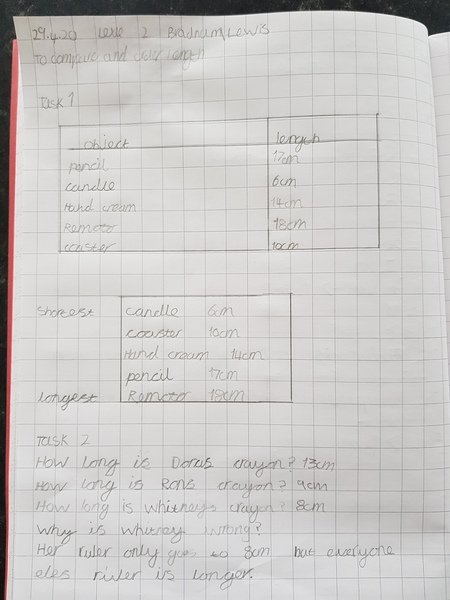 29.4.20 2 Bradnum/Lewis
To compare and order length
Task 1
object length
pencil 17cm
candle 6cm
Hand cream 14cm
Remotor 18cm
coaster 10cm
shortest candle 6cm
coaster 10cm
Hand cream 14cm
pencil 17cm
longest Remotor 18cm
TASK 2
How long is Doras crayon? 13cm
How long is Rons crayon? 9cm
How long is whitneys crayon? 8cm
Why is whitney wrong?
Her ruler only goes to 8cm but everyone
eles ruler is longer.